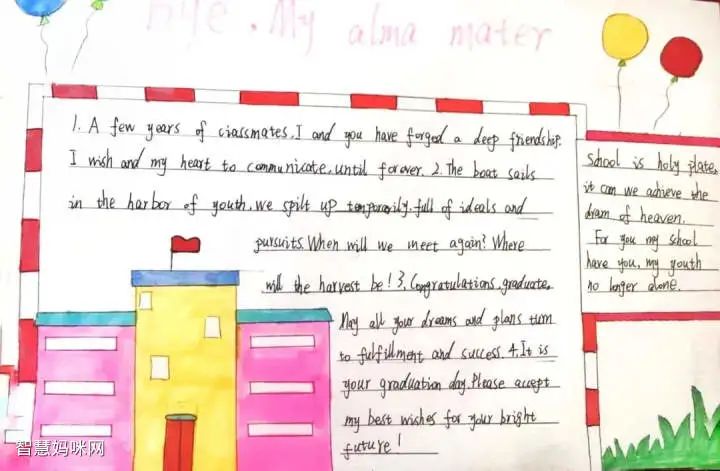 Bye. My alma mater
1. A few years of ciassmates, I and you have forged a deep friendship.
I wish and my heart to communicate, until forever. 2. The boat sails
in the harbor of youth, we spilt up temporarily, full of ideals and
pursuits. When will we meet again? Where
will the harvest be! 3. Congratulations, graduate.
May all your dreams and plans turn
to fulfillment and success. 4. It is
your graduation day. Please accept
my best wishes for your bright
future!
School is holy plate,
it can we achieve the
dram of heaven.
For you my school
have you, my youth
no longer alone.
智慧妈咪网